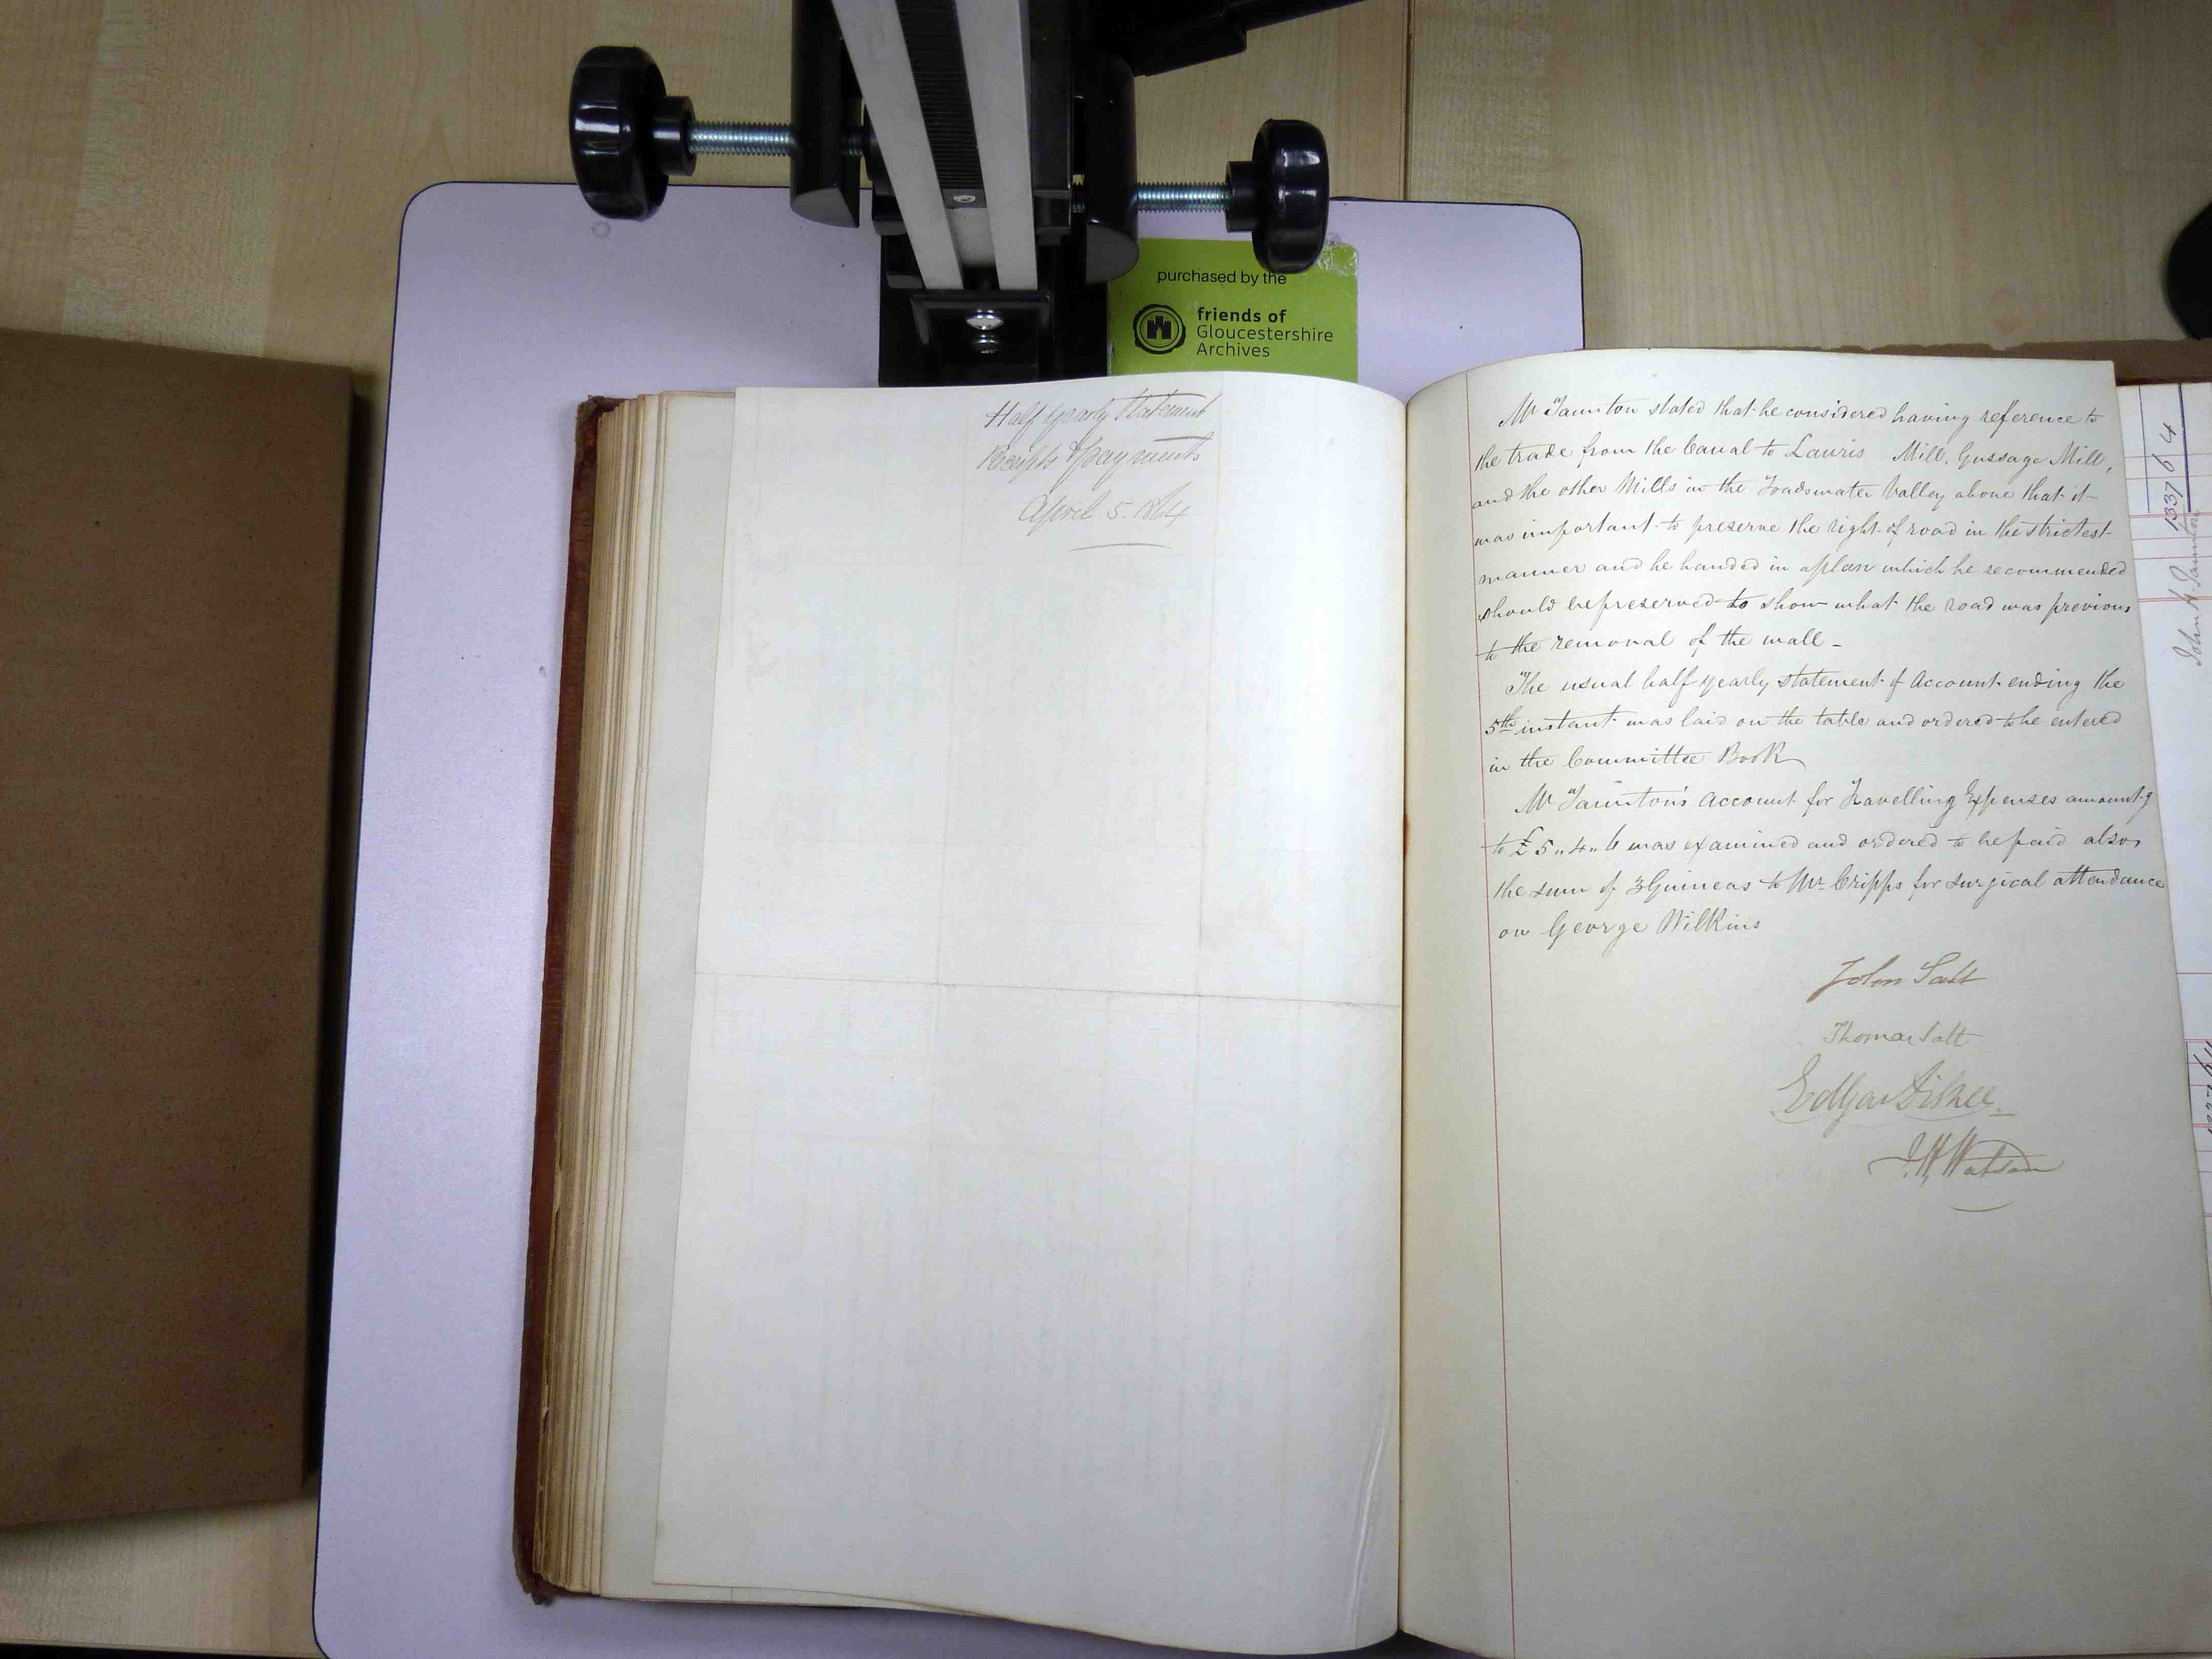 purchased by the
friends of
Gloucestershire
Archives
Half Yearly Statement
Receipts & payments
April 5. 1864
Mr Taunton stated that he considered having reference to
the trade from the Canal to Lauris Mill, Gussage Mill,
and the other Mills in the Toadsmater Valley above that it
was important to preserve the right of road in the strictest
manner and he handed in a plan which he recommended
should be preserved to show what the road was previous
to the removal of the wall -
The usual half yearly statement of Account ending the
5th instant was laid on the table and ordered to be entered
in the Committee Book
Mr Taunton's Account for Travelling Expenses amountg
to £5,,4,,6 was examined and ordered to be paid also
the sum of 3 Guineas to Mr Cripps for surgical attendance
on George Wilkins
John Salt
Thomas Salt
Edgar Fisher
J W Watson
1337 6 4
John H. Taunton